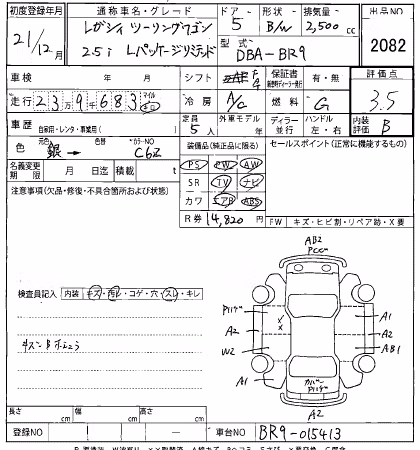 初度登録年月
21/12月
通称車名・グレード
レガシィ ツーリングワゴン
2.5i Lパッケージリミテッド
ドア
5
形状
B/W
排気量
2,500 cc
型式
DBA-BR9
出品NO
2082
車検 年 月
シフト
保証書
有・無
評価点
3.5
走行 23万9千683 マイル
冷房
A/C
燃料
G
車歴
自家用・レンタ・事業用( )
定員
5人
外車モデル
年
ディーラー
並行
ハンドル
左・右
内装
評価
B
色
元色
銀→
色替
カラーNO
C6Z
装備品(純正品に限る)
セールスポイント(正常に機能するもの)
名義変更
期限
月 日迄
積載
t
PS PW AW
SR TV ナビ
カワ エアB ABS
注意事項(欠品・修復・不具合箇所および状態)
R券 14,820 円
FW キズ・ヒビ割・リペア跡・X要
検査員記入
内装
キズ・汚レ・コゲ・穴・スレ・キレ
AB2
A1
A2
A2
W2
AB1
A1
A2
長さ cm
幅 cm
高さ cm
登録NO
車台NO
BR9-015413